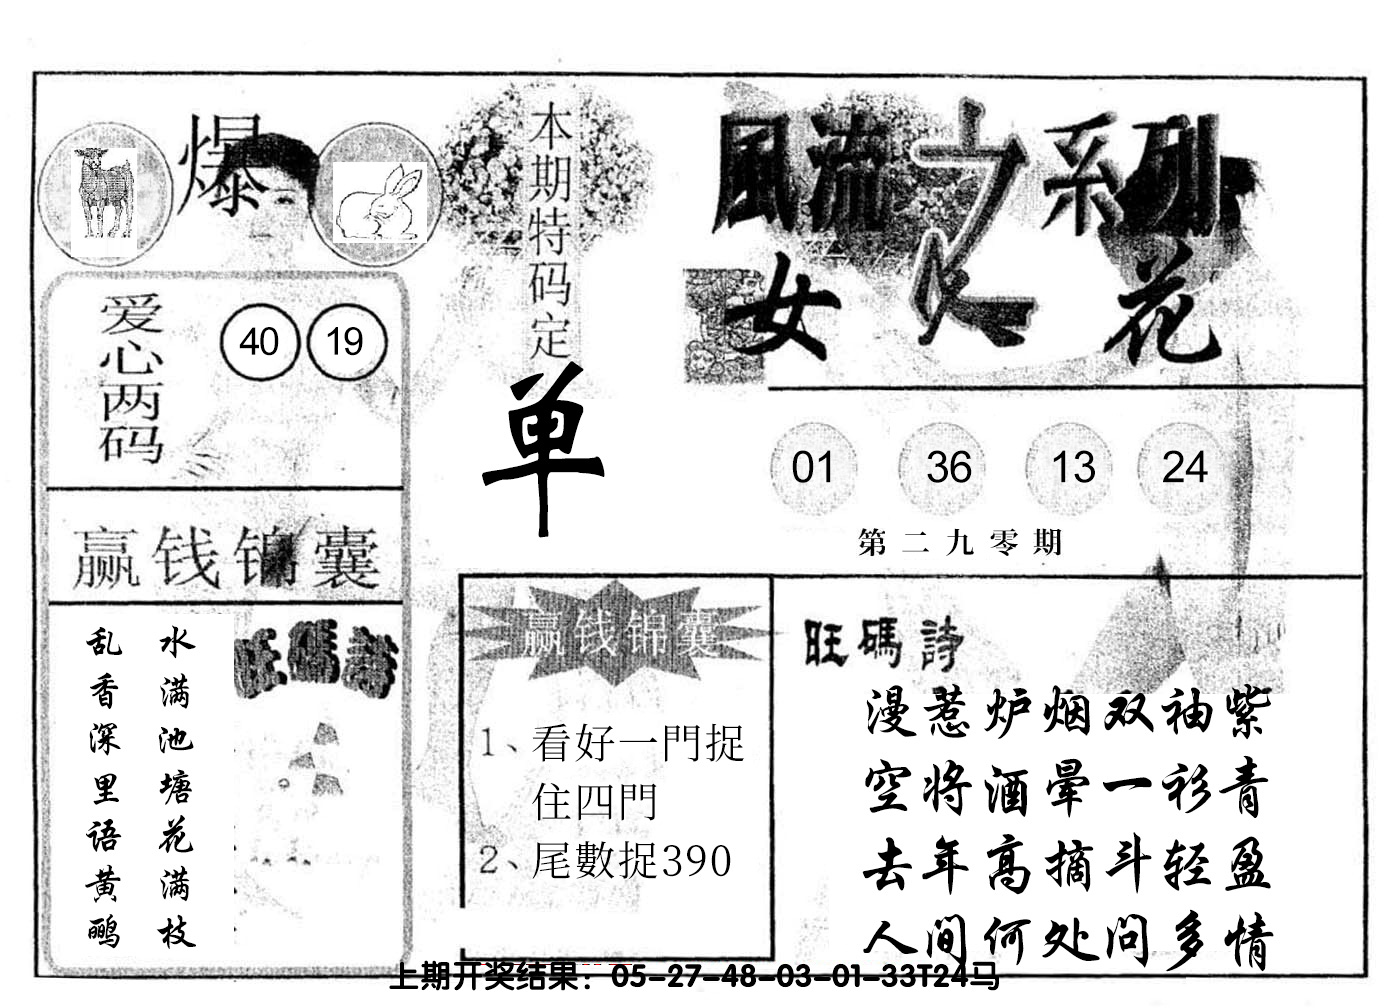 爆
本期特码定
单
爱心两码
40 19
赢钱锦囊
旺碼詩
水满池塘花满枝
乱香深里语黄鹂
風流之系列
女人花
01 36 13 24
第二九零期
赢钱锦囊
1、看好一門捉
住四門
2、尾數捉390
旺碼詩
漫惹炉烟双袖紫
空将酒晕一衫青
去年高摘斗轻盈
人间何处问多情
上期开奖结果：05-27-48-03-01-33T24马